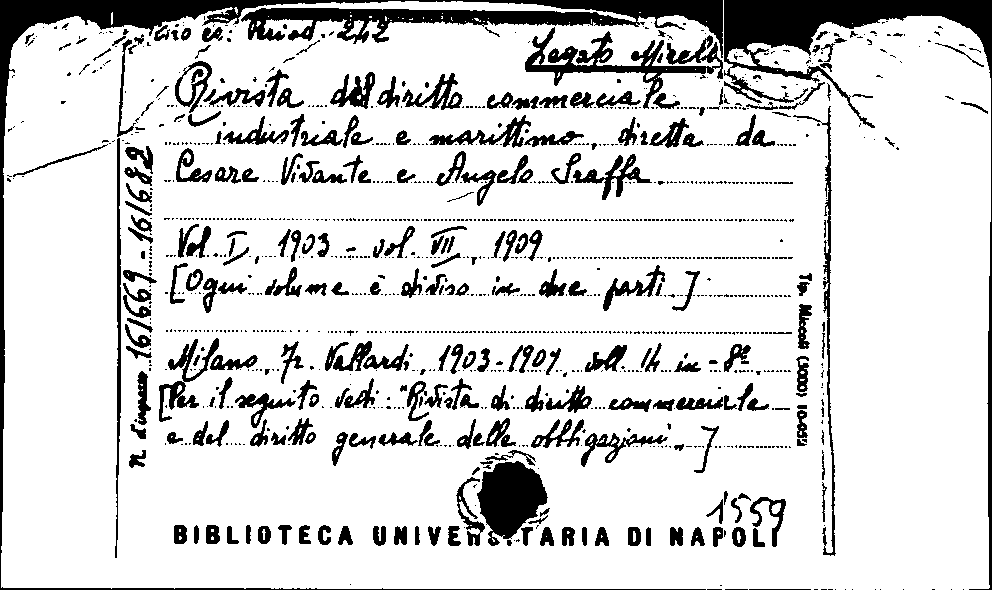 Period. 242
Legato Mirell
Rivista del diritto commerciale,
industriale e marittimo, diretta da
Cesare Vivante e Angelo Sraffa.
Vol. I, 1903 - vol. VII, 1909.
[Ogni volume è diviso in due parti.]
Milano, Fr. Vallardi, 1903-1909, voll. 14 in-8º.
[Per il seguito vedi: "Rivista di diritto commerciale
e del diritto generale delle obbligazioni„]
1559
BIBLIOTECA UNIVERSITARIA DI NAPOLI
n. d'ingresso 161669 - 161682
Tip. (3000) 10-952